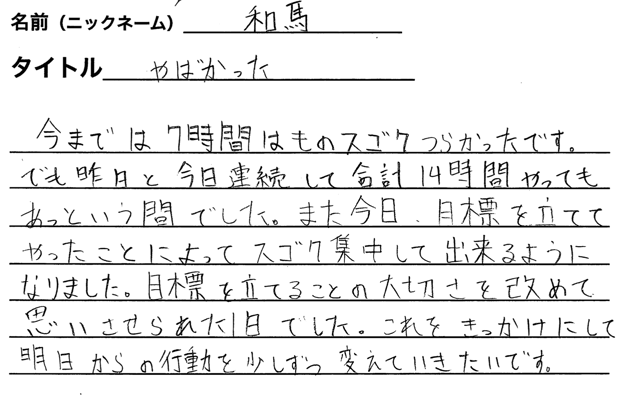 名前（ニックネーム） 和馬
タイトル やばかった
今までは7時間はものスゴクつらかったです。
でも昨日と今日連続して合計14時間やっても
あっという間でした。また今日、目標を立てて
やったことによってスゴク集中して出来るように
なりました。目標を立てることの大切さを改めて
思いさせられた1日でした。これをきっかけにして
明日からの行動を少しずつ変えていきたいです。